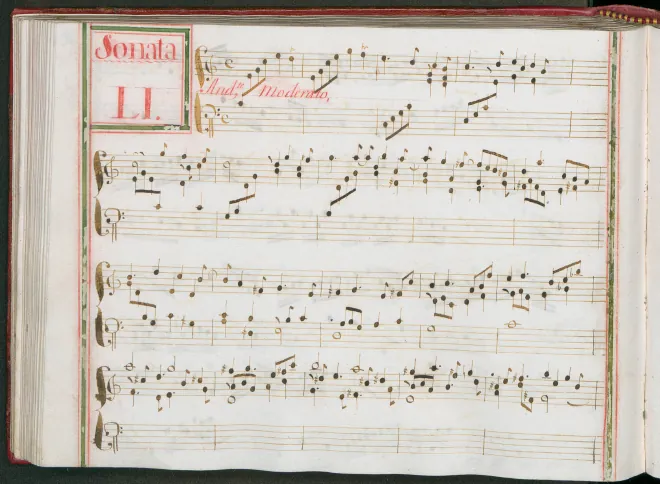 Sonata
LI.
And.te Moderato,